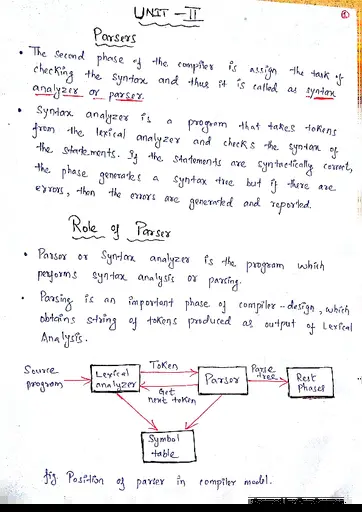 UNIT - II
Parsers
• The second phase of the compiler is assign the task of
checking the syntax and thus it is called as syntax
analyzer or parser.
• Syntax analyzer is a program that takes tokens
from the lexical analyzer and checks the syntax of
the statements. If the statements are syntactically correct,
the phase generates a syntax tree but if there are
errors, then the errors are generated and reported.
Role of Parser
• Parsor or Syntax analyzer is the program which
performs syntax analysis or parsing.
• Parsing is an important phase of compiler - design, which
obtains string of tokens produced as output of Lexical
Analysis.
Source
program
Lexical
analyzer
Token
Get
next token
Parsor
Parse
tree
Rest
Phases
Symbol
table
fig Position of parser in compiler model.